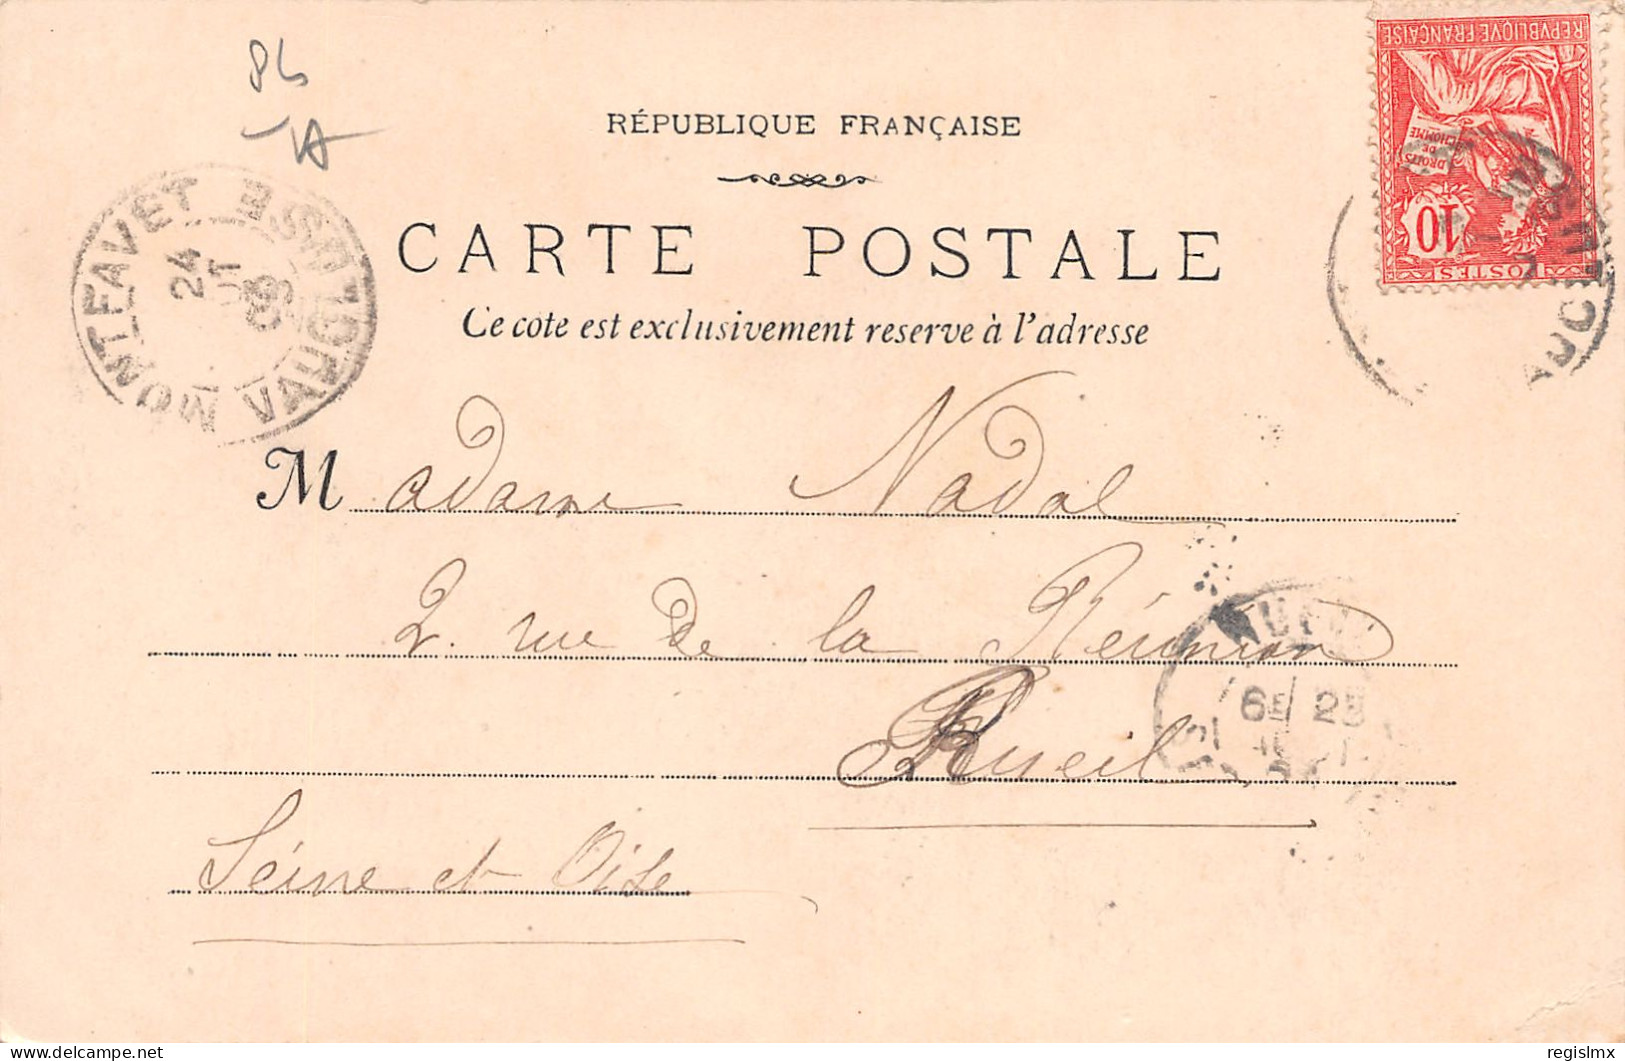 84
RÉPUBLIQUE FRANÇAISE
CARTE POSTALE
Ce cote est exclusivement reserve à l'adresse
REPVBLIQVE FRANÇAISE
DROITS DE L'HOMME
10
POSTES
MONTFAVET VAUCLUSE
24
03
VAUCLUSE
Madame Nadal
2. rue de la Réunion
Rueil
Seine et Oise
6E 25
delcampe.net
regislmx